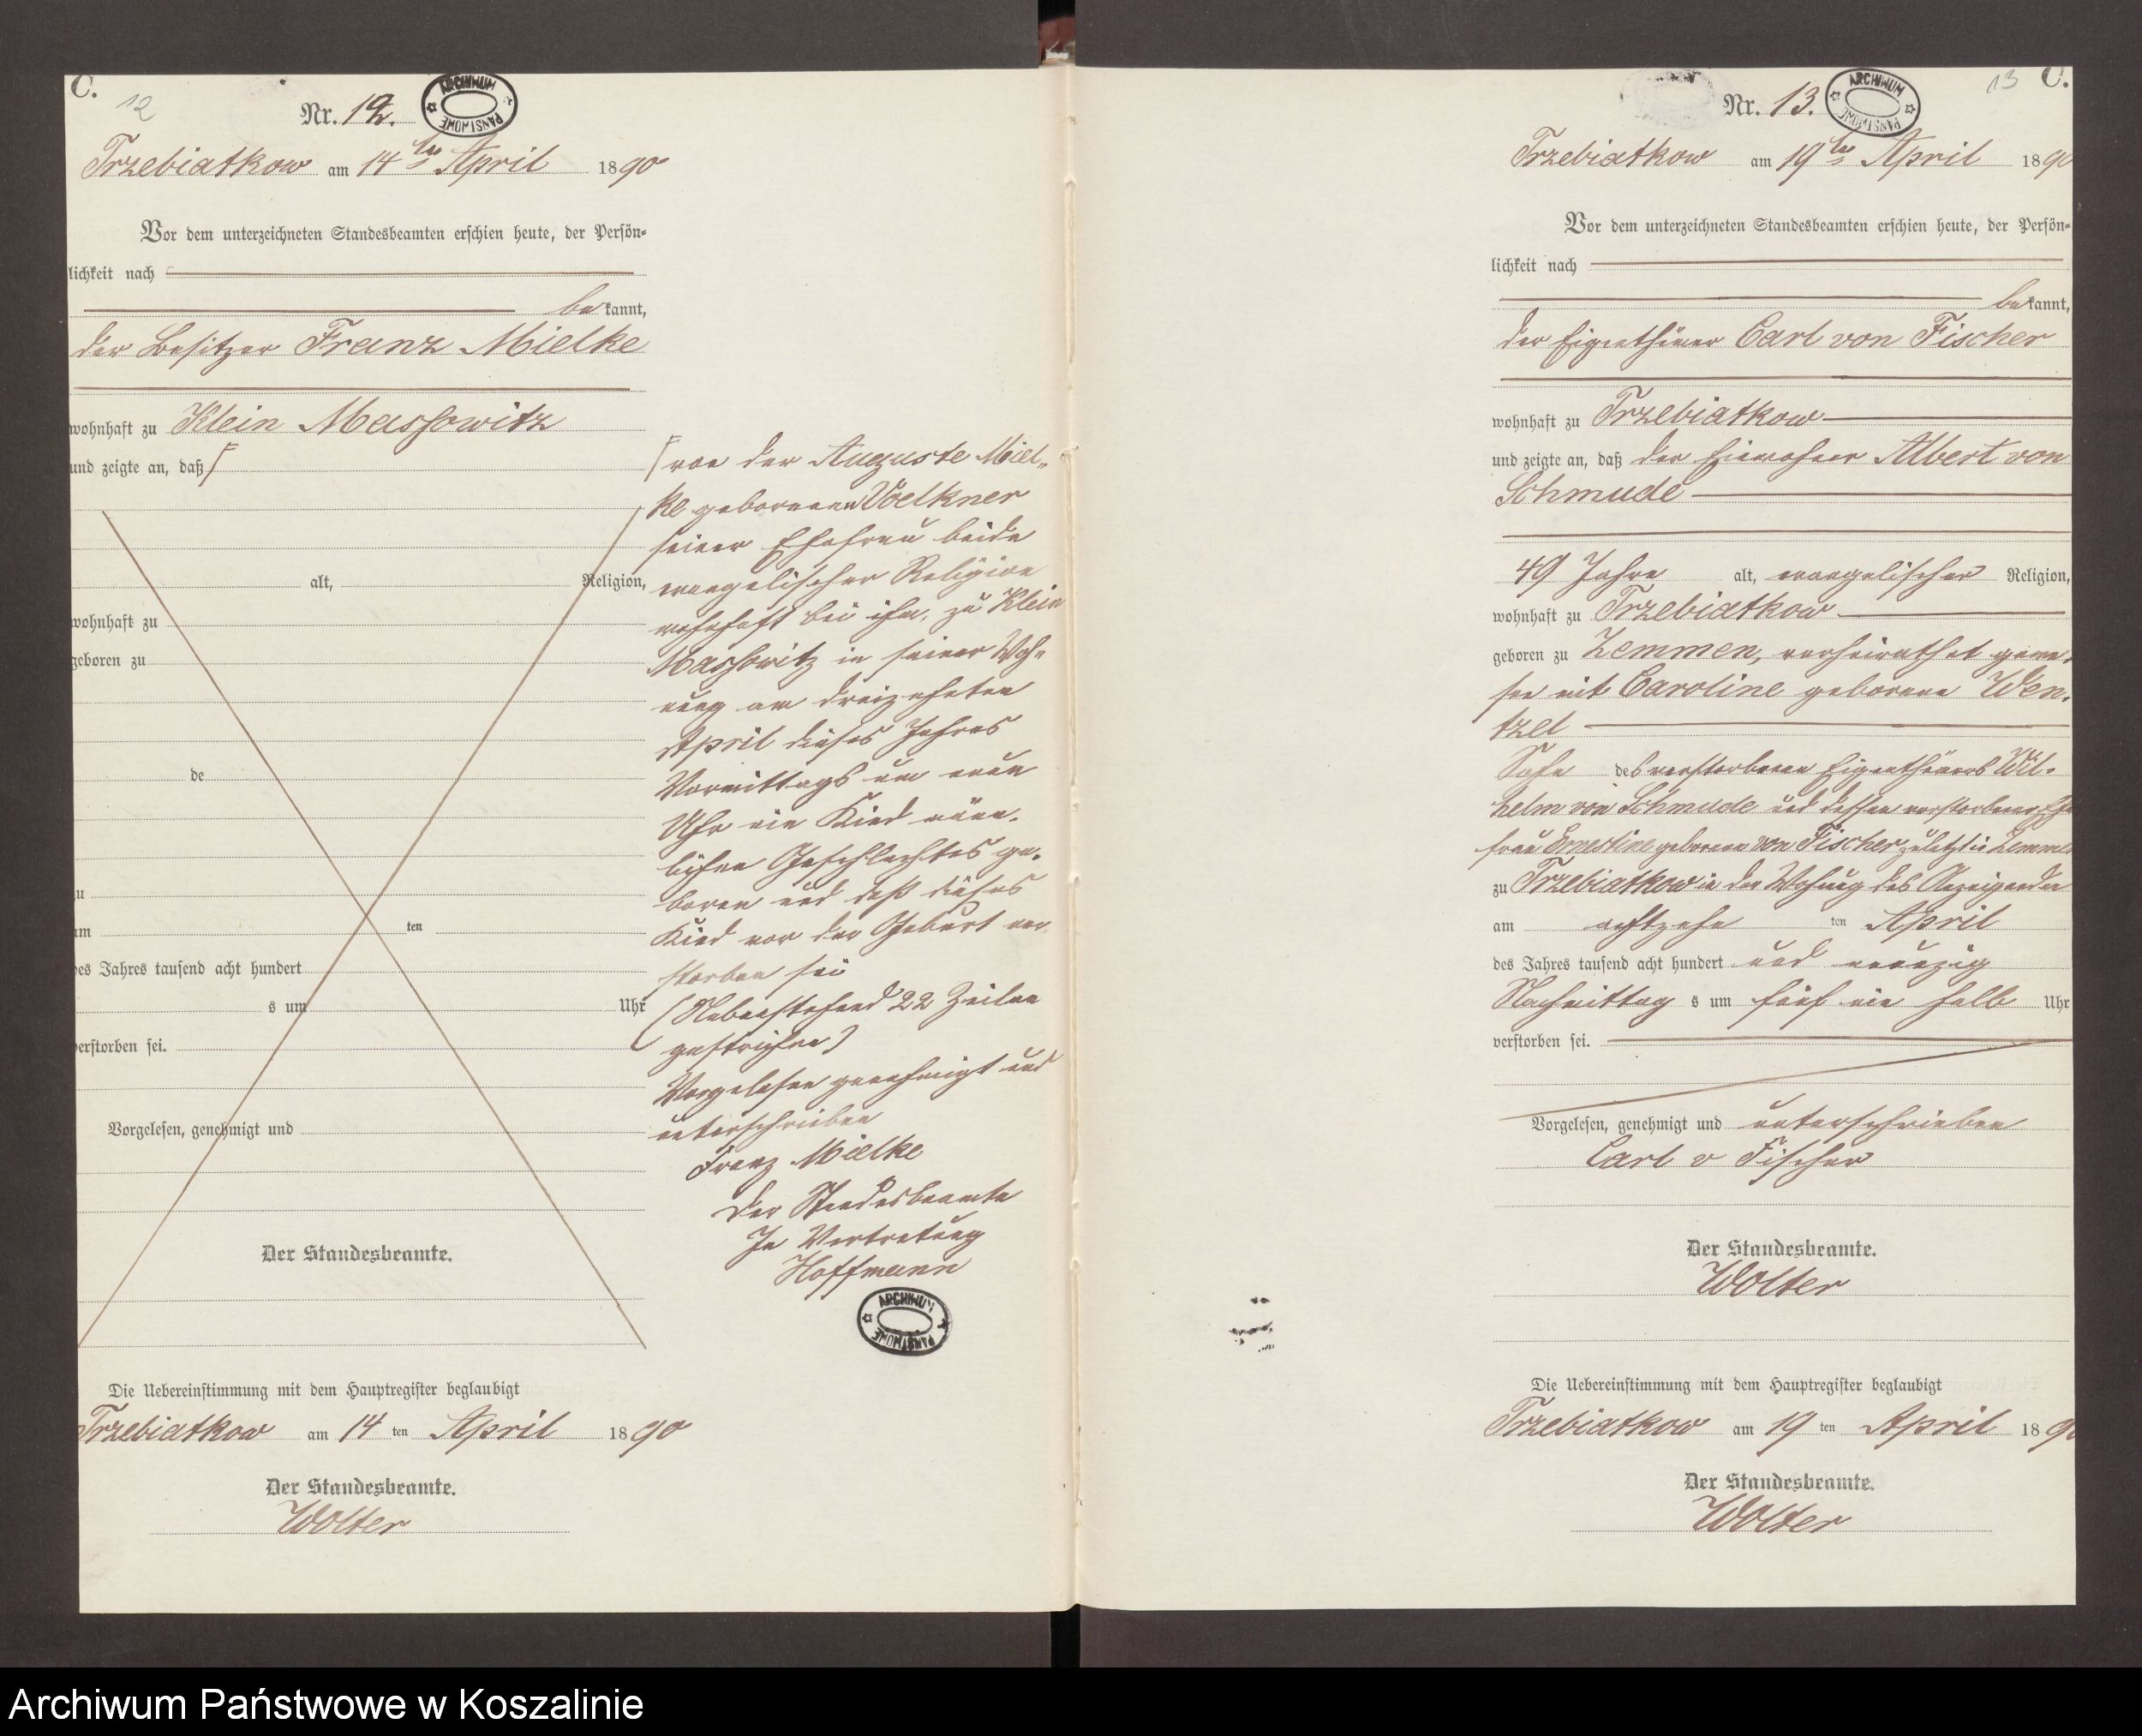 C.
12
Nr. 12.
ARCHIWUM PAŃSTWOWE
Trzebiatkow am 14ten April 1890
Vor dem unterzeichneten Standesbeamten erschien heute, der Persön-
lichkeit nach
bekannt,
der Besitzer Franz Mielke
wohnhaft zu Klein Massowitz
und zeigte an, daß
alt, Religion,
wohnhaft zu
geboren zu
de
zu
am ten
des Jahres tausend acht hundert
s um Uhr
verstorben sei.
Vorgelesen, genehmigt und
Der Standesbeamte.
von der Auguste Miel-
ke geborenen Voelkner
seiner Ehefrau beide
evangelischer Religion
wohnhaft bei ihm, zu Klein
Massowitz in seiner Woh-
nung am dreizehnten
April dieses Jahres
Vormittags um neun
Uhr ein Kind männ-
lichen Geschlechtes ge-
boren und daß dieses
Kind vor der Geburt ver
storben sei
(Nebenstehend 22 Zeilen
gestrichen)
Vorgelesen genehmigt und
unterschrieben
Franz Mielke
Der Standesbeamte
In Vertretung
Hoffmann
ARCHIWUM PAŃSTWOWE
Die Uebereinstimmung mit dem Hauptregister beglaubigt
Trzebiatkow am 14 ten April 1890
Der Standesbeamte.
Wolter
13 C.
Nr. 13.
ARCHIWUM PAŃSTWOWE
Trzebiatkow am 19ten April 1890
Vor dem unterzeichneten Standesbeamten erschien heute, der Persön-
lichkeit nach
bekannt,
der Eigenthümer Carl von Fischer
wohnhaft zu Trzebiatkow
und zeigte an, daß der Einwohner Albert von
Schmude
49 Jahre alt, evangelischer Religion,
wohnhaft zu Trzebiatkow
geboren zu Zemmen, verheirathet gewe-
sen mit Caroline geborene Wen-
tzel
Sohn des verstorbenen Eigenthümers Wil-
helm von Schmude und dessen verstorbener Ehe
frau Ernestine geborene von Fischer zuletzt in Zemmen
zu Trzebiatkow in der Wohnung des Anzeigenden
am achtzehn ten April
des Jahres tausend acht hundert und neunzig
Nachmittag s um fünf ein halb Uhr
verstorben sei.
Vorgelesen, genehmigt und unterschrieben
Carl v Fischer
Der Standesbeamte.
Wolter
Die Uebereinstimmung mit dem Hauptregister beglaubigt
Trzebiatkow am 19 ten April 1890
Der Standesbeamte.
Wolter
Archiwum Państwowe w Koszalinie